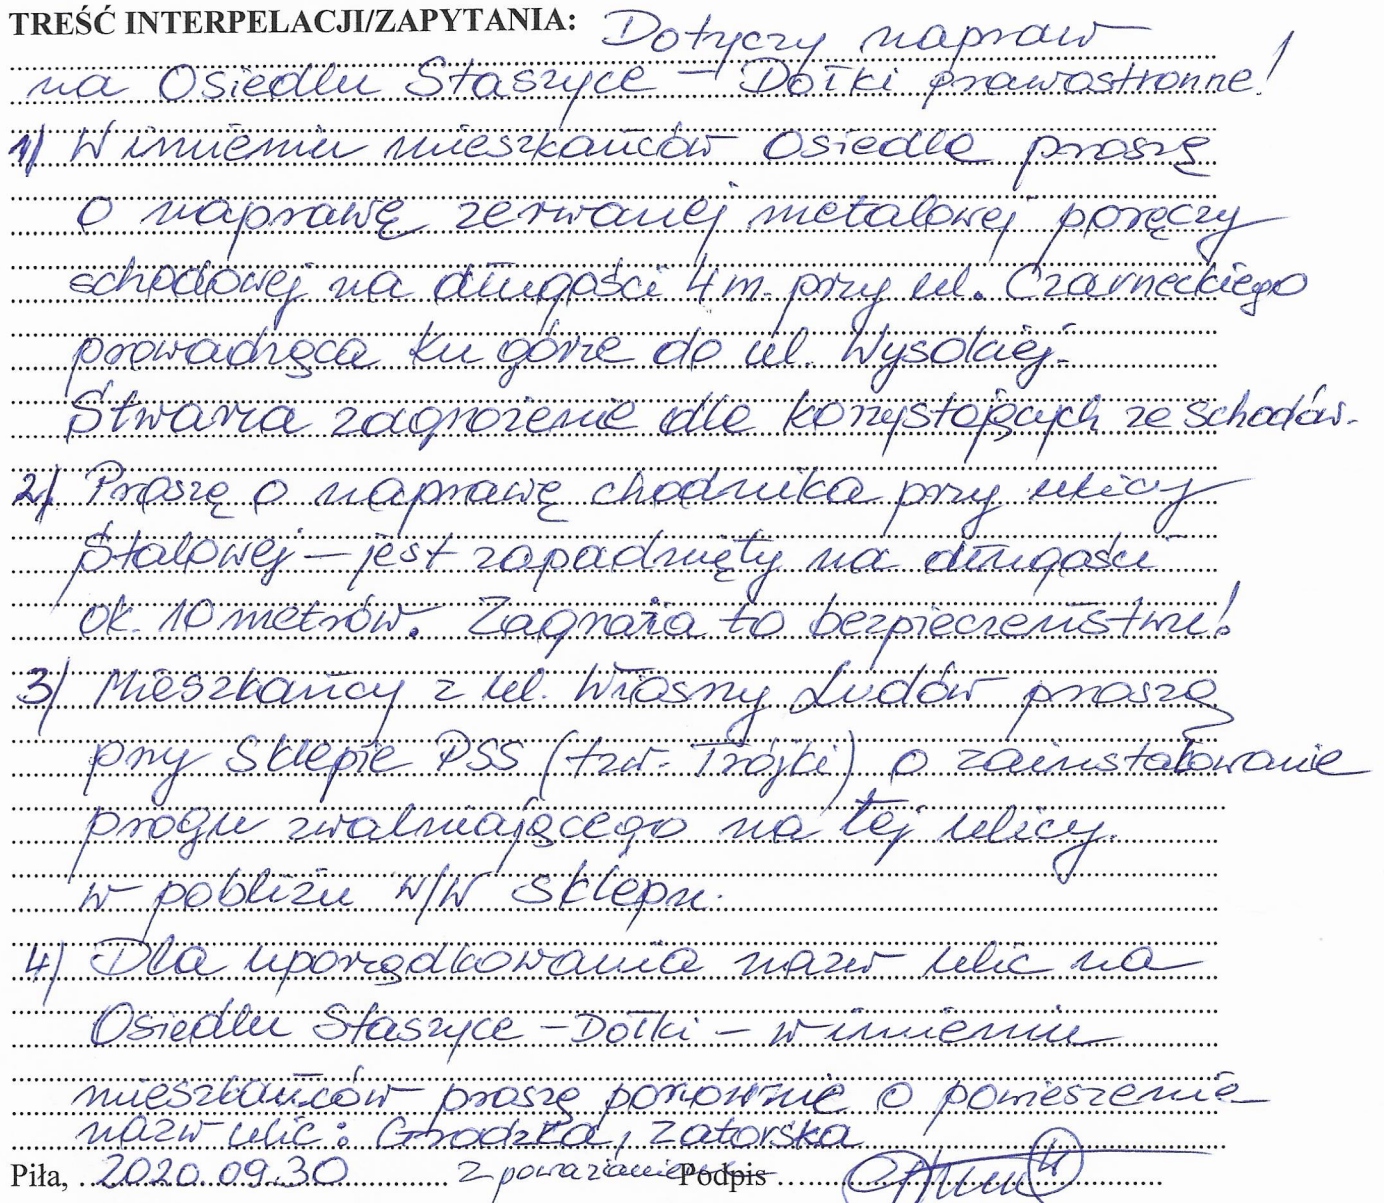 TREŚĆ INTERPELACJI/ZAPYTANIA: Dotyczy napraw
na Osiedlu Staszyce - Dołki prawostronne!
1) W imieniu mieszkańców Osiedla proszę
o naprawę zerwanej metalowej poręczy
schodowej na długości 4 m. przy ul. Czarneckiego
prowadząca ku górze do ul. Wysokiej.
Stwarza zagrożenie dla korzystających ze schodów.
2) Proszę o naprawę chodnika przy ulicy
Stalowej - jest zapadnięty na długości
ok. 10 metrów. Zagraża to bezpieczeństwu!
3) Mieszkańcy z ul. Wiosny Ludów proszą
przy Sklepie PSS (tzw. Trójki) o zainstalowanie
progu zwalniającego na tej ulicy.
w pobliżu w/w sklepu.
4) Dla uporządkowania nazw ulic na
Osiedlu Staszyce - Dołki - w imieniu
mieszkańców proszę ponownie o powieszenie
nazw ulic: Grodzka, Zatorska
Piła, 2020.09.30 Z poważaniem Podpis